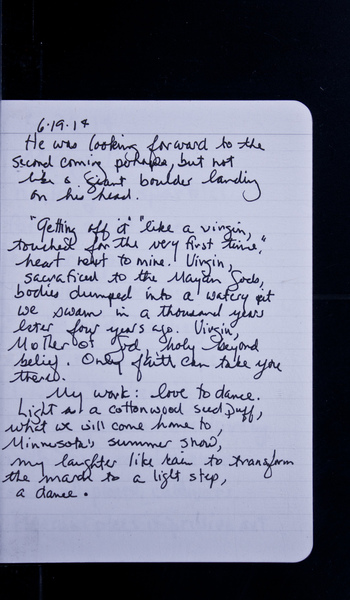 6.19.14
He was looking forward to the
second coming perhaps, but not
like a giant boulder landing
on his head.
"Getting off it" "like a virgin,
touched for the very first time,"
heart next to mine. Virgin,
sacrificed to the Mayan Gods,
bodies dumped into a watery pit
we swam in a thousand years
later four years ago. Virgin,
Mother of God, holy beyond
belief. Only faith can take you
there.
My work: love to dance.
Light as a cottonwood seed puff,
what we will come home to,
Minnesota's summer snow,
my laughter like rain to transform
the march to a light step,
a dance.